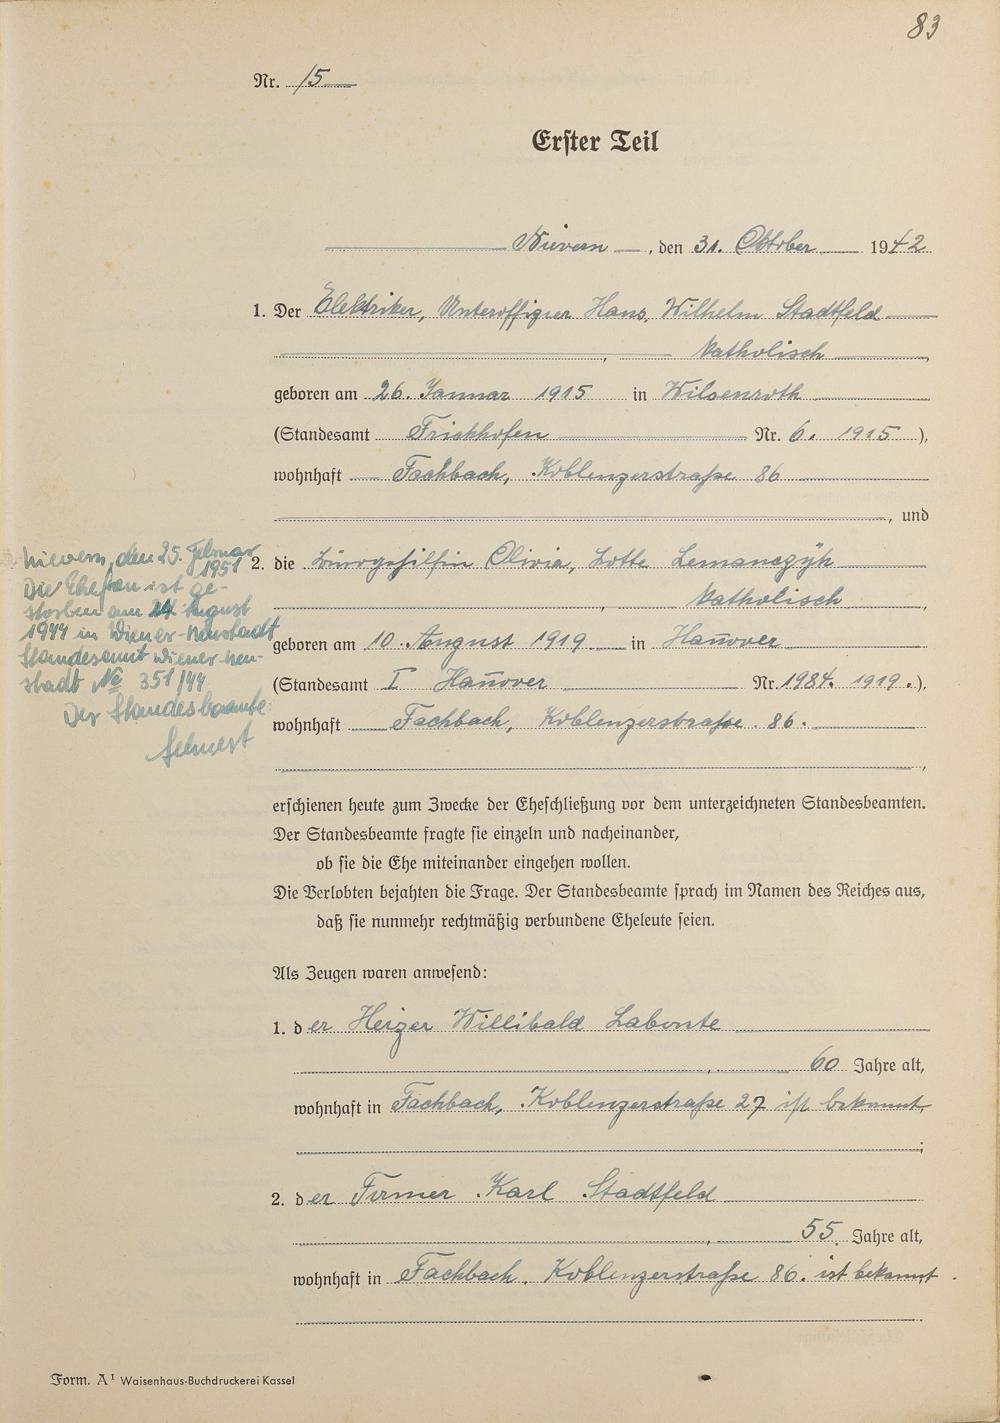 83
Nr. 15
Erster Teil
Nievern, den 31. Oktober 1942
1. Der Elektriker, Unteroffizier Hans, Wilhelm Stadtfeld
, katholisch,
geboren am 26. Januar 1915 in Wilsenroth
(Standesamt Frickhofen Nr. 6. 1915),
wohnhaft Fachbach, Koblenzerstraße 86
, und
2. die Bürogehilfin Olivia, Lotte Lemanczyk
, katholisch,
geboren am 10. August 1919 in Han̄over
(Standesamt I Han̄over Nr. 1984. 1919.),
wohnhaft Fachbach, Koblenzerstraße. 86.
,
Nievern, den 25. Februar
1951
Die Ehefrau ist ge-
storben am 24. August
1944 in Wiener-Neustadt
Standesamt Wiener-Neu-
stadt № 351/44
Der Standesbeamte:
erschienen heute zum Zwecke der Eheschließung vor dem unterzeichneten Standesbeamten.
Der Standesbeamte fragte sie einzeln und nacheinander,
ob sie die Ehe miteinander eingehen wollen.
Die Verlobten bejahten die Frage. Der Standesbeamte sprach im Namen des Reiches aus,
daß sie nunmehr rechtmäßig verbundene Eheleute seien.
Als Zeugen waren anwesend:
1. der Heizer Willibald Labonte
, 60 Jahre alt,
wohnhaft in Fachbach, Koblenzerstraße 27 ist bekannt,
;
2. der Former Karl Stadtfeld
, 55 Jahre alt,
wohnhaft in Fachbach. Koblenzerstraße 86. ist bekannt.
Form. A I Waisenhaus-Buchdruckerei Kassel